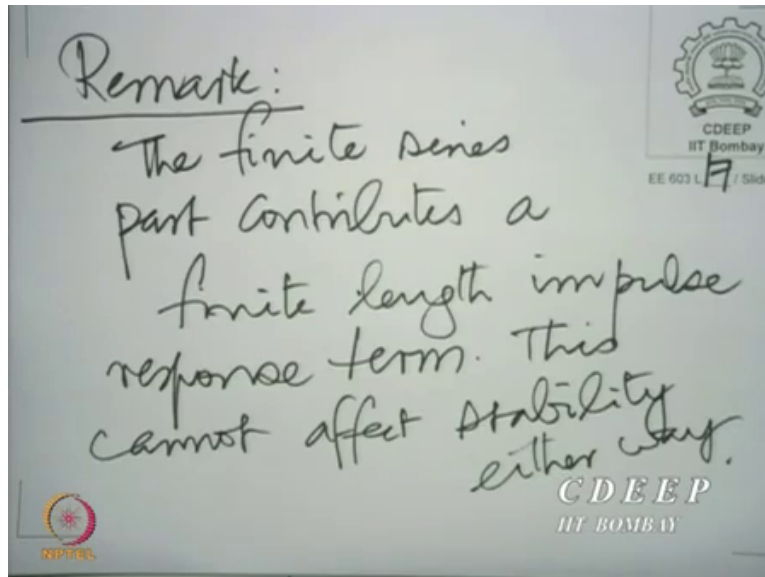 Remark:
The finite series
part contributes a
finite length impulse
response term. This
cannot affect stability
either way.
CDEEP
IIT Bombay
EE 603 L 17 / Slide
CDEEP
IIT BOMBAY
NPTEL